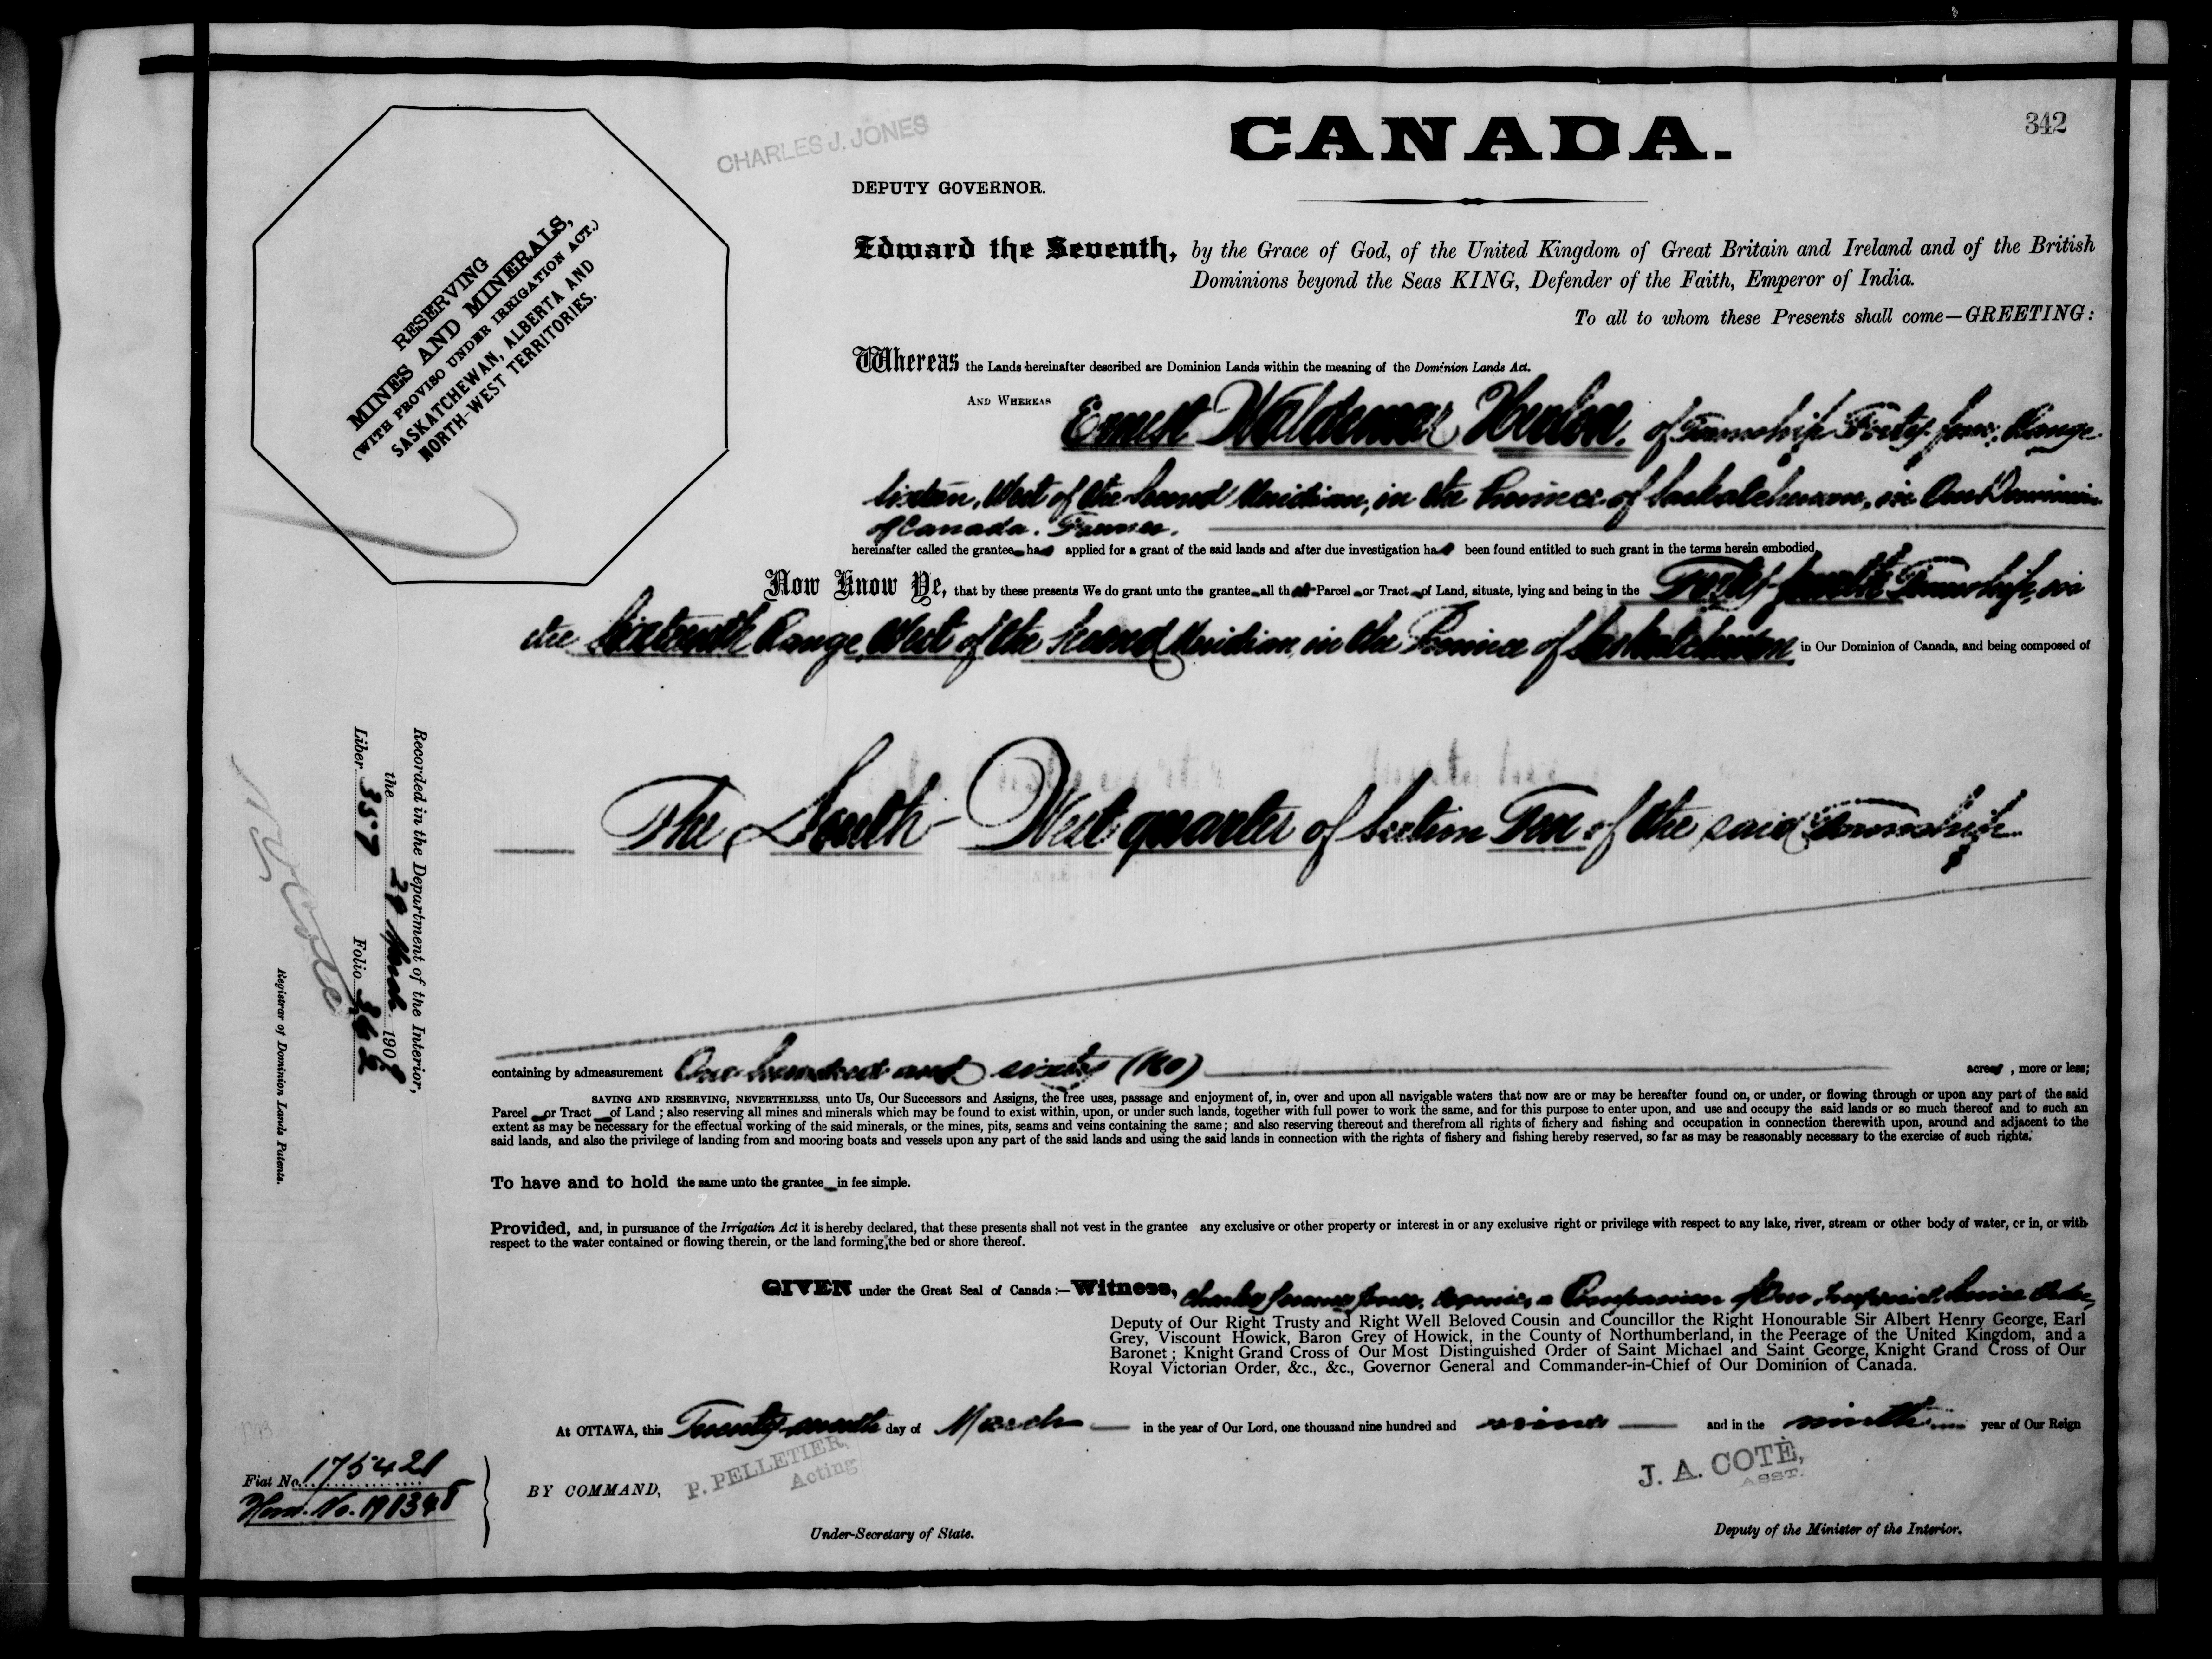 342
CHARLES J. JONES
CANADA.
DEPUTY GOVERNOR.
RESERVING
MINES AND MINERALS,
(WITH PROVISO UNDER IRRIGATION ACT.)
SASKATCHEWAN, ALBERTA AND
NORTH-WEST TERRITORIES.
Edward the Seventh, by the Grace of God, of the United Kingdom of Great Britain and Ireland and of the British
Dominions beyond the Seas KING, Defender of the Faith, Emperor of India.
To all to whom these Presents shall come—GREETING:
Whereas the Lands hereinafter described are Dominion Lands within the meaning of the Dominion Lands Act.
AND WHEREAS Ernest Waldemar of Township Forty four, Range
Sixteen, West of the Second Meridian, in the Province of Saskatchewan, in Our Dominion
of Canada. Farmer.
hereinafter called the grantee has applied for a grant of the said lands and after due investigation has been found entitled to such grant in the terms herein embodied.
Now Know Ye, that by these presents We do grant unto the grantee all that Parcel or Tract of Land, situate, lying and being in the Forty-fourth Township, in
the Sixteenth Range, West of the Second Meridian, in the Province of Saskatchewan, in Our Dominion of Canada, and being composed of
The South-West quarter of Section Ten of the said Township
Recorded in the Department of the Interior,
the 29 March 1909
Liber 357 Folio 342
N O Coté
Registrar of Dominion Lands Patents.
containing by admeasurement One hundred and sixty (160) acres, more or less;
SAVING AND RESERVING, NEVERTHELESS, unto Us, Our Successors and Assigns, the free uses, passage and enjoyment of, in, over and upon all navigable waters that now are or may be hereafter found on, or under, or flowing through or upon any part of the said
Parcel or Tract of Land; also reserving all mines and minerals which may be found to exist within, upon, or under such lands, together with full power to work the same, and for this purpose to enter upon, and use and occupy the said lands or so much thereof and to such an
extent as may be necessary for the effectual working of the said minerals, or the mines, pits, seams and veins containing the same; and also reserving thereout and therefrom all rights of fichery and fishing and occupation in connection therewith upon, around and adjacent to the
said lands, and also the privilege of landing from and mooring boats and vessels upon any part of the said lands and using the said lands in connection with the rights of fishery and fishing hereby reserved, so far as may be reasonably necessary to the exercise of such rights.
To have and to hold the same unto the grantee in fee simple.
Provided, and, in pursuance of the Irrigation Act it is hereby declared, that these presents shall not vest in the grantee any exclusive or other property or interest in or any exclusive right or privilege with respect to any lake, river, stream or other body of water, or in, or with
respect to the water contained or flowing therein, or the land forming the bed or shore thereof.
GIVEN under the Great Seal of Canada:—Witness, Charles Jones, a Companion of Our Imperial Service Order,
Deputy of Our Right Trusty and Right Well Beloved Cousin and Councillor the Right Honourable Sir Albert Henry George, Earl
Grey, Viscount Howick, Baron Grey of Howick, in the County of Northumberland, in the Peerage of the United Kingdom, and a
Baronet; Knight Grand Cross of Our Most Distinguished Order of Saint Michael and Saint George, Knight Grand Cross of Our
Royal Victorian Order, &c., &c., Governor General and Commander-in-Chief of Our Dominion of Canada.
At OTTAWA, this day of March in the year of Our Lord, one thousand nine hundred and nine and in the ninth year of Our Reign
Fiat No. 175421
Hom. No.
BY COMMAND,
P. PELLETIER,
Acting
J. A. COTÉ,
ASST.
Under-Secretary of State.
Deputy of the Minister of the Interior.